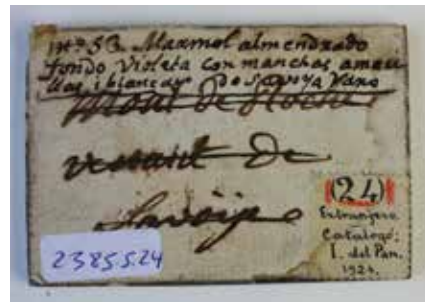 nº 53. Marmol almendrado
fondo Violeta con manchas amari
llas i blancas De Savoya
Mont de
versant de
Savoije
(24)
Extranjero
Catalogó;
I. del Pan.
1924.
2385.S.24